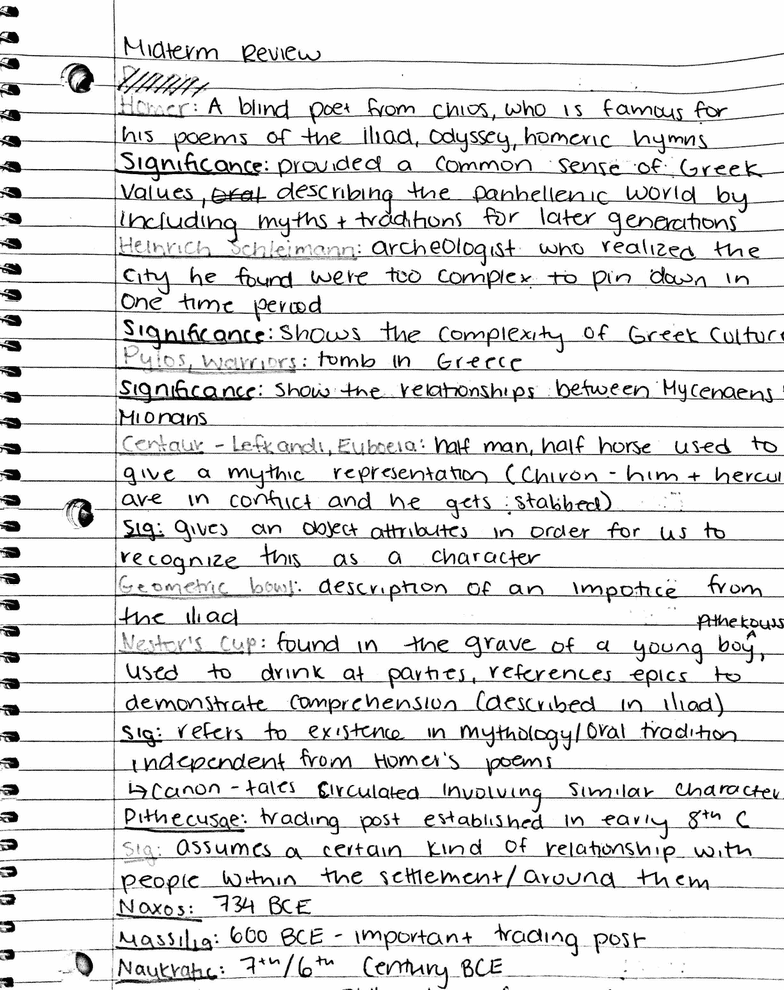 Midterm Review
Homer: A blind poet from Chios, who is famous for
his poems of the Iliad, Odyssey, homeric hymns
Significance: provided a common sense of Greek
values, oral describing the panhellenic world by
including myths + traditions for later generations
Heinrich Schleimann: archeologist who realized the
city he found were too complex to pin down in
one time period
Significance: Shows the complexity of Greek Cultur
Pylos, warriors: tomb in Greece
Significance: show the relationships between Mycenaens
Mionans
Centaur - Lefkandi, Euboeia: half man, half horse used to
give a mythic representation (Chiron - him + hercul
are in conflict and he gets stabbed)
Sig: gives an object attributes in order for us to
recognize this as a character
Geometric bowl: description of an impotice from
the iliad
Pithekouss
Nestor's Cup: found in the grave of a young boy,
used to drink at parties, references epics to
demonstrate comprehension (described in iliad)
Sig: refers to existence in mythology/oral tradition
independent from Homer's poems
↳ Canon - tales circulated involving similar character
Pithecusae: trading post established in early 8th C
Sig: assumes a certain kind of relationship with
people within the settlement/around them
Naxos: 734 BCE
Massilia: 600 BCE - important trading post
Naukratic: 7th/6th Century BCE